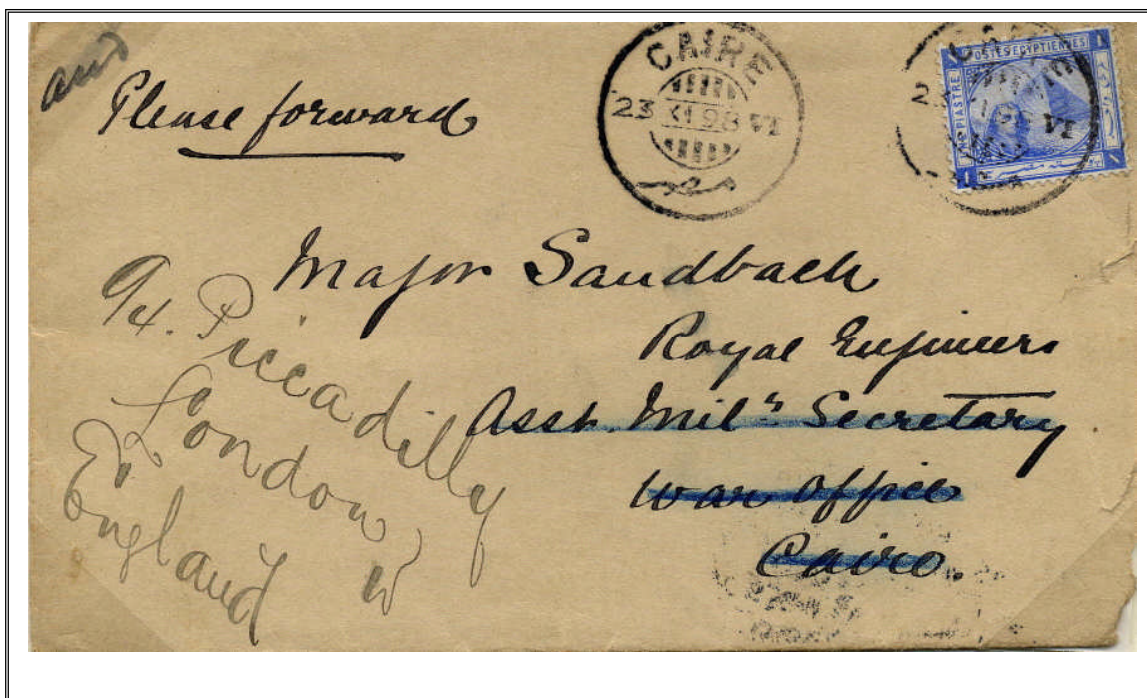 and
Please forward
CAIRE
23 XI 98 VI
مصر
POSTES EGYPTIENNES
UNE PIASTRE
1
1
1
Major Sandbach
Royal Engineers
Asst. Mily Secretary
War Office
Cairo.
94. Piccadilly
London W
England